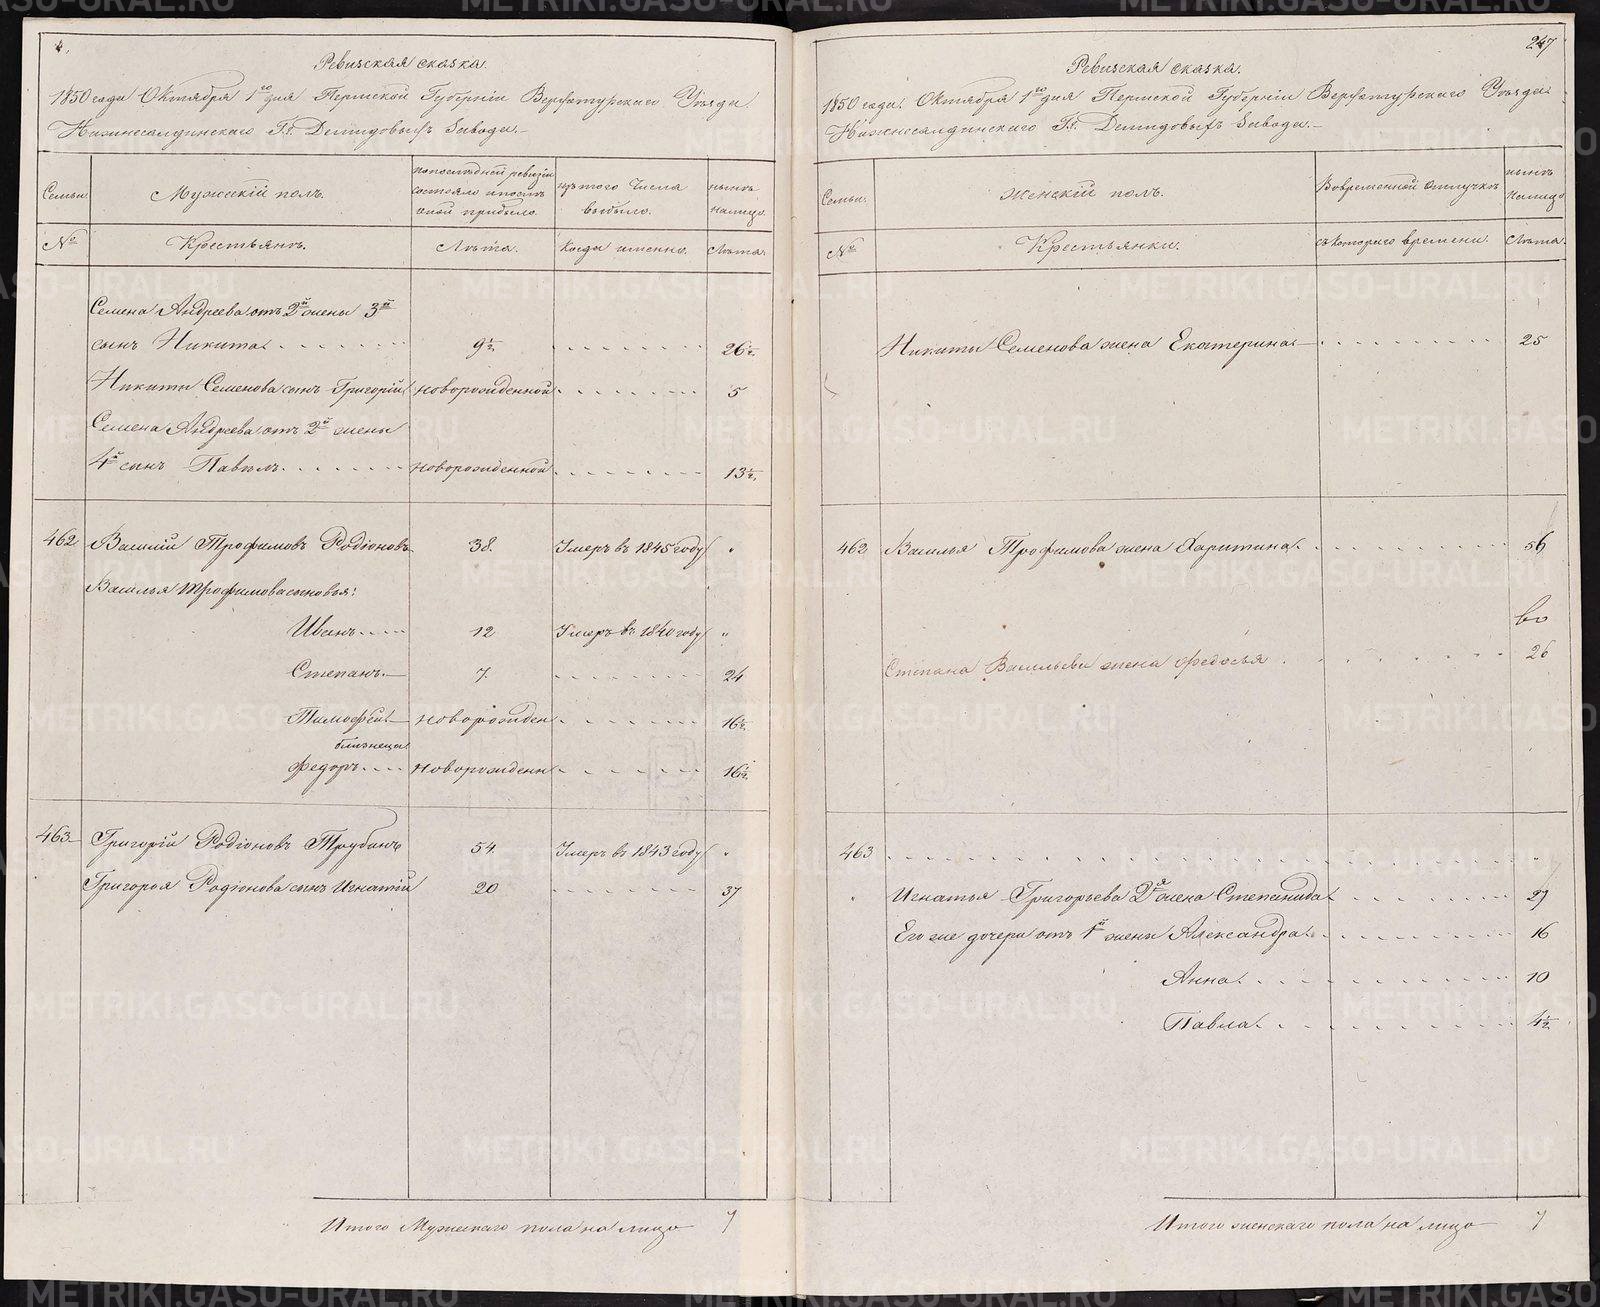 4.
Ревизская сказка.
1850 года Октября 1го дня Пермской Губерніи Верхотурскаго Уѣзда
Нижнесалдинскаго Гг. Демидовыхъ Завода.
Семьи.
Мужскій полъ.
По послѣдней ревизіи
состояло и послѣ
оной прибыло.
Изъ того числа
выбыло.
Нынѣ
налицо.
№
Крестьянъ.
Лѣта.
Когда именно.
Лѣта.
Семена Андреева отъ 2й жены 3й
сынъ Никита 9½ 26½
Никиты Семенова сынъ Григорій новорожденной 5
Семена Андреева отъ 2й жены
4й сынъ Павелъ новорожденной 13½
462 Василій Трофимовъ Родіоновъ 38. Умеръ въ 1845 году "
Василья Трофимова сыновья:
Иванъ 12 Умеръ въ 1840 году "
Степанъ 7. 24
Тимофей новорожден 16½
близнецы
Федоръ новорожден 16½
463 Григорій Родіоновъ Трубинъ 54. Умеръ въ 1843 году "
Григорья Родіонова сынъ Игнатій 20 37
Итого Мужескаго пола на лицо 7
247
Ревизская сказка.
1850 года Октября 1го дня Пермской Губерніи Верхотурскаго Уѣзда
Нижнесалдинскаго Гг. Демидовыхъ Завода.
Семьи.
Женскій полъ.
Во временной отлучкѣ
нынѣ
налицо
№
Крестьянки.
съ котораго времени.
Лѣта.
Никиты Семенова жена Екатерина 25
462 Василья Трофимова жена Харитина 56
Степана Васильева жена Федосья 26
463 "
Игнатья Григорьева 2я жена Степанида 27
Его же дочери отъ 1й жены Александра 16
Анна 10
Павла 4½
Итого женскаго пола на лицо 7
METRIKI.GASO-URAL.RU